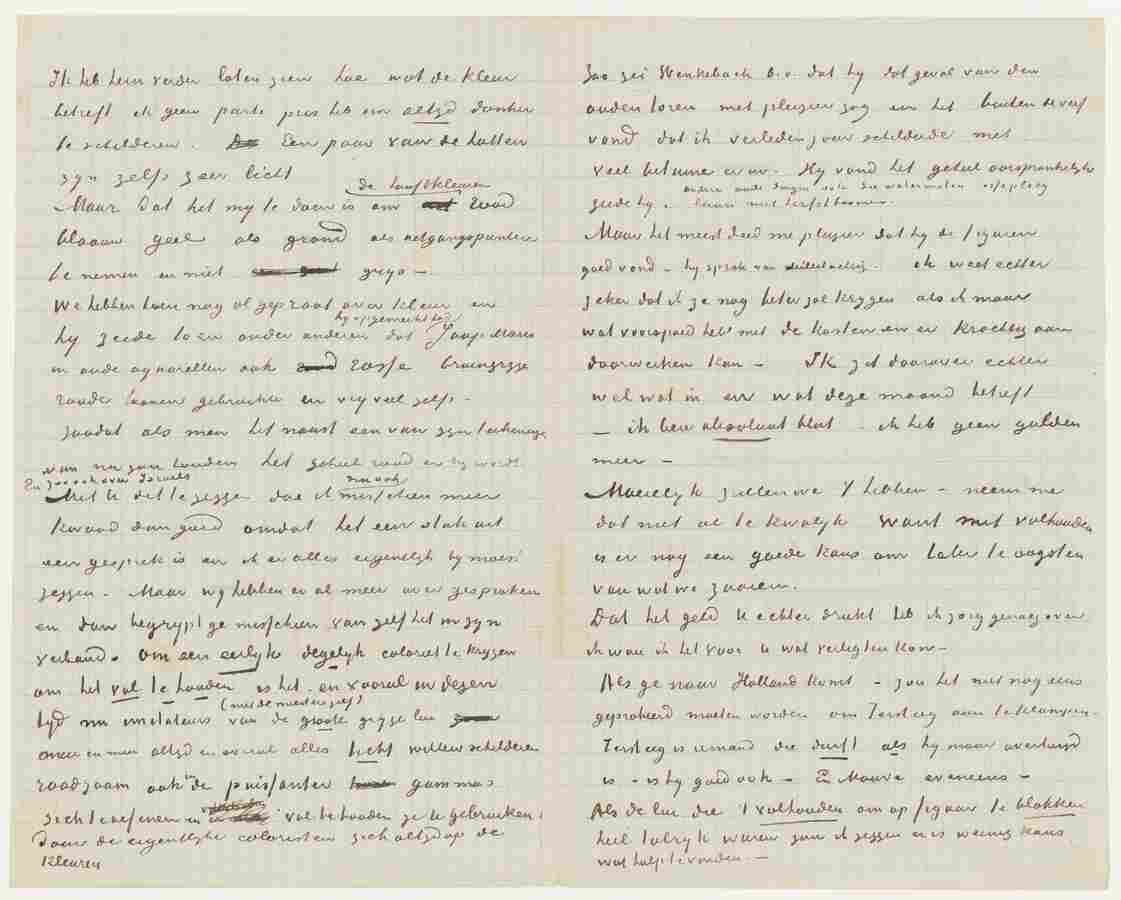 Ik heb hem verder laten zien hoe wat de kleur
betreft ik geen parti pris heb om altyd donker
te schilderen. Een paar van de hutten
zyn zelfs zeer licht
de hoofdkleuren
Maar dat het my te doen is om rood
blaauw geel als grond als uitgangspunten
te nemen en niet grys –
We hebben toen nog al gepraat over kleur en
hy opgemerkt had
hy zeide toen onder anderen dat Jaap Maris
in oude aquarellen ook rosse bruingryze
roode toonen gebruikte en vry veel zelfs –
zoodat als men het naast een van zyn teekeningen
van nu zou houden het geheel rood er by wordt.
En zoo ook over Israels
nu ook
Met U dit te zeggen doe ik misschien meer
kwaad dan goed omdat het een stuk uit
een gesprek is en ik er alles eigentlyk by moest
zeggen. Maar wy hebben er al meer over gesproken
en dan begrypt ge misschien van zelf het in zyn
verband. Om een eerlyk degelyk coloriet te krygen
om het vol te houden is het – en vooral in dezen
(niet de meester zelf)
tyd nu imitateurs van de groote gryze lui
en men altyd en overal alles licht willen schilderen
raadzaam ook in de puissanter gammas
zich te oefenen en vol te houden ze te gebruiken.
de eigentlyke coloristen zich altyd op de
kleuren
Zoo zei Wenkebach b.v. dat hy dat geval van den
ouden toren met plezier zag en het buiten de verf
vond dat ik verleden jaar schilderde met
veel bitume er in. Hy vond het geheel oorspronkelyk
andere oude dingen ook die watermolen
zeide hy. laan met herfstboomen.
Maar het meest deed me plezier dat hy de figuren
goed vond – hy sprak van Ik weet echter
zeker dat ik ze nog beter zal krygen als ik maar
wat voorspoed heb met de kosten en er krachtig aan
doorwerken kan – IK zit daarover echter
wel wat in en wat deze maand betreft
– ik ben absoluut blut – ik heb geen gulden
meer –
Moeielyk zullen we 't hebben – neem me
dat niet al te kwalyk want met volhouden
is er nog een goede kans om later te oogsten
van wat we zaaien.
Dat het geld U echter drukt heb ik zorg genoeg over
ik wou ik het voor U wat verligten kon –
Als ge naar Holland komt – zou het niet nog eens
geprobeerd moeten worden om Tersteeg aan te klampen –
Tersteeg is iemand die durft als hy maar overtuigd
is – is hy goed ook – En Mauve eveneens –
Als de lui die 't volhouden om op figuur te blokken
heel talryk waren zou ik zeggen er is weinig kans
wat hulp te vinden. –